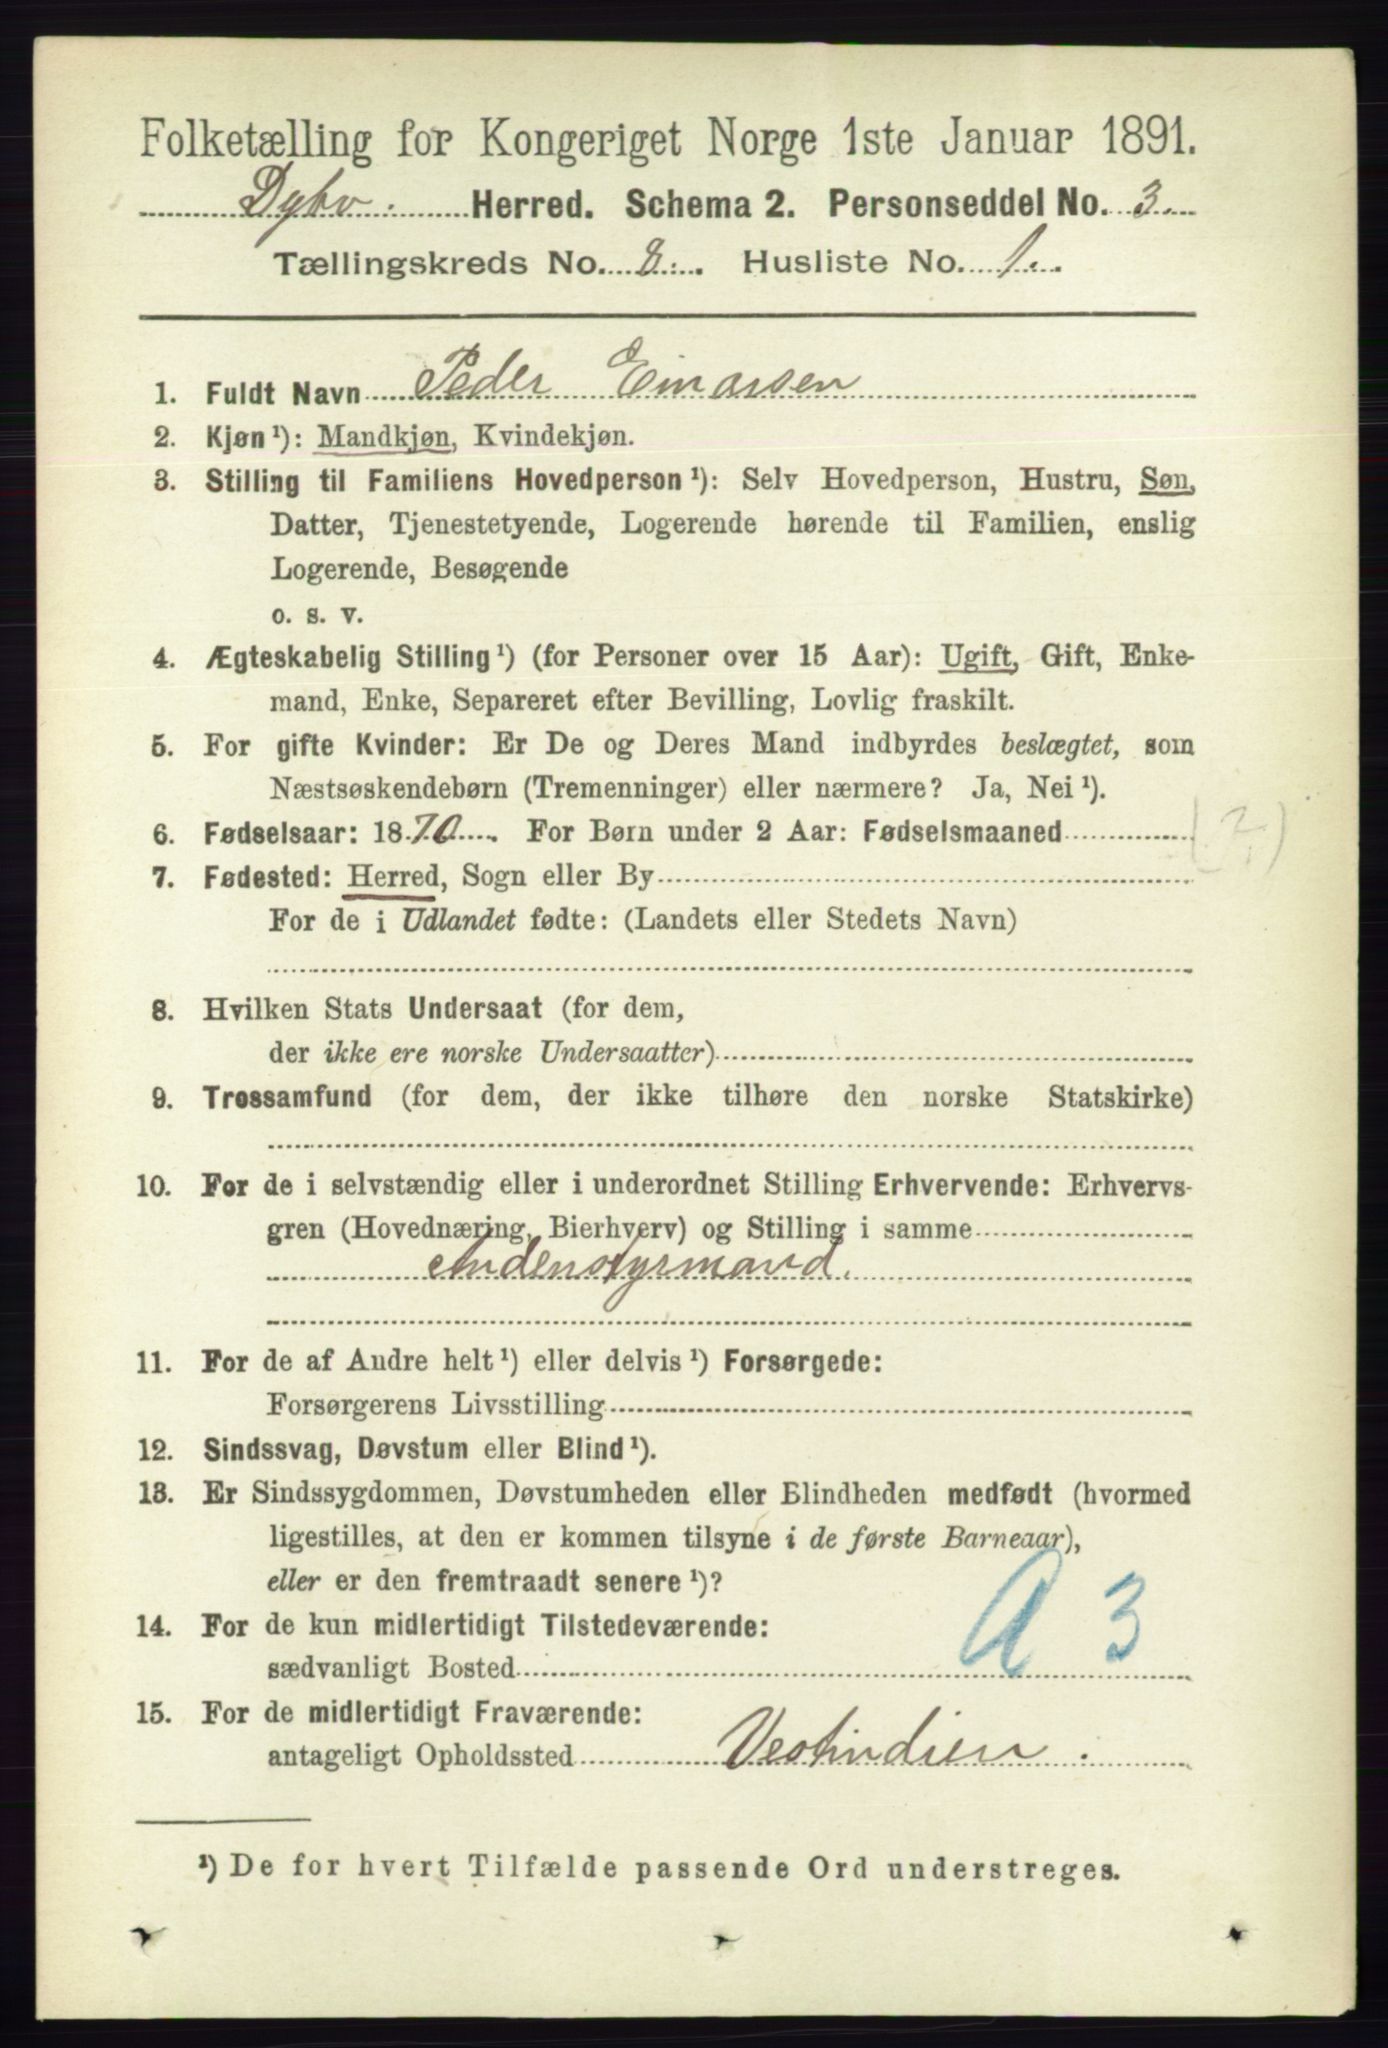 Folketælling for Kongeriget Norge 1ste Januar 1891.
Dybv. Herred. Schema 2. Personseddel No. 3.
Tællingskreds No. 8. Husliste No. 1.
1. Fuldt Navn Peder Einarsen
2. Kjøn ¹): Mandkjøn, Kvindekjøn.
3. Stilling til Familiens Hovedperson ¹): Selv Hovedperson, Hustru, Søn,
Datter, Tjenestetyende, Logerende hørende til Familien, enslig
Logerende, Besøgende
o. s. v.
4. Ægteskabelig Stilling ¹) (for Personer over 15 Aar): Ugift, Gift, Enke-
mand, Enke, Separeret efter Bevilling, Lovlig fraskilt.
5. For gifte Kvinder: Er De og Deres Mand indbyrdes beslægtet, som
Næstsøskendebørn (Tremenninger) eller nærmere? Ja, Nei ¹).
6. Fødselsaar: 1870. For Børn under 2 Aar: Fødselsmaaned
(?)
7. Fødested: Herred, Sogn eller By
For de i Udlandet fødte: (Landets eller Stedets Navn)
8. Hvilken Stats Undersaat (for dem,
der ikke ere norske Undersaatter)
9. Trossamfund (for dem, der ikke tilhøre den norske Statskirke)
10. For de i selvstændig eller i underordnet Stilling Erhvervende: Erhvervs-
gren (Hovednæring, Bierhverv) og Stilling i samme
Andenstyrmand.
11. For de af Andre helt ¹) eller delvis ¹) Forsørgede:
Forsørgerens Livsstilling
12. Sindssvag, Døvstum eller Blind ¹).
13. Er Sindssygdommen, Døvstumheden eller Blindheden medfødt (hvormed
ligestilles, at den er kommen tilsyne i de første Barneaar),
eller er den fremtraadt senere ¹)?
A 3
14. For de kun midlertidigt Tilstedeværende:
sædvanligt Bosted
15. For de midlertidigt Fraværende:
antageligt Opholdssted Vestindien.
¹) De for hvert Tilfælde passende Ord understreges.